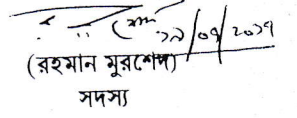 ১৯/০৭/২০১৭
(রহমান মুরশেদ)
সদস্য